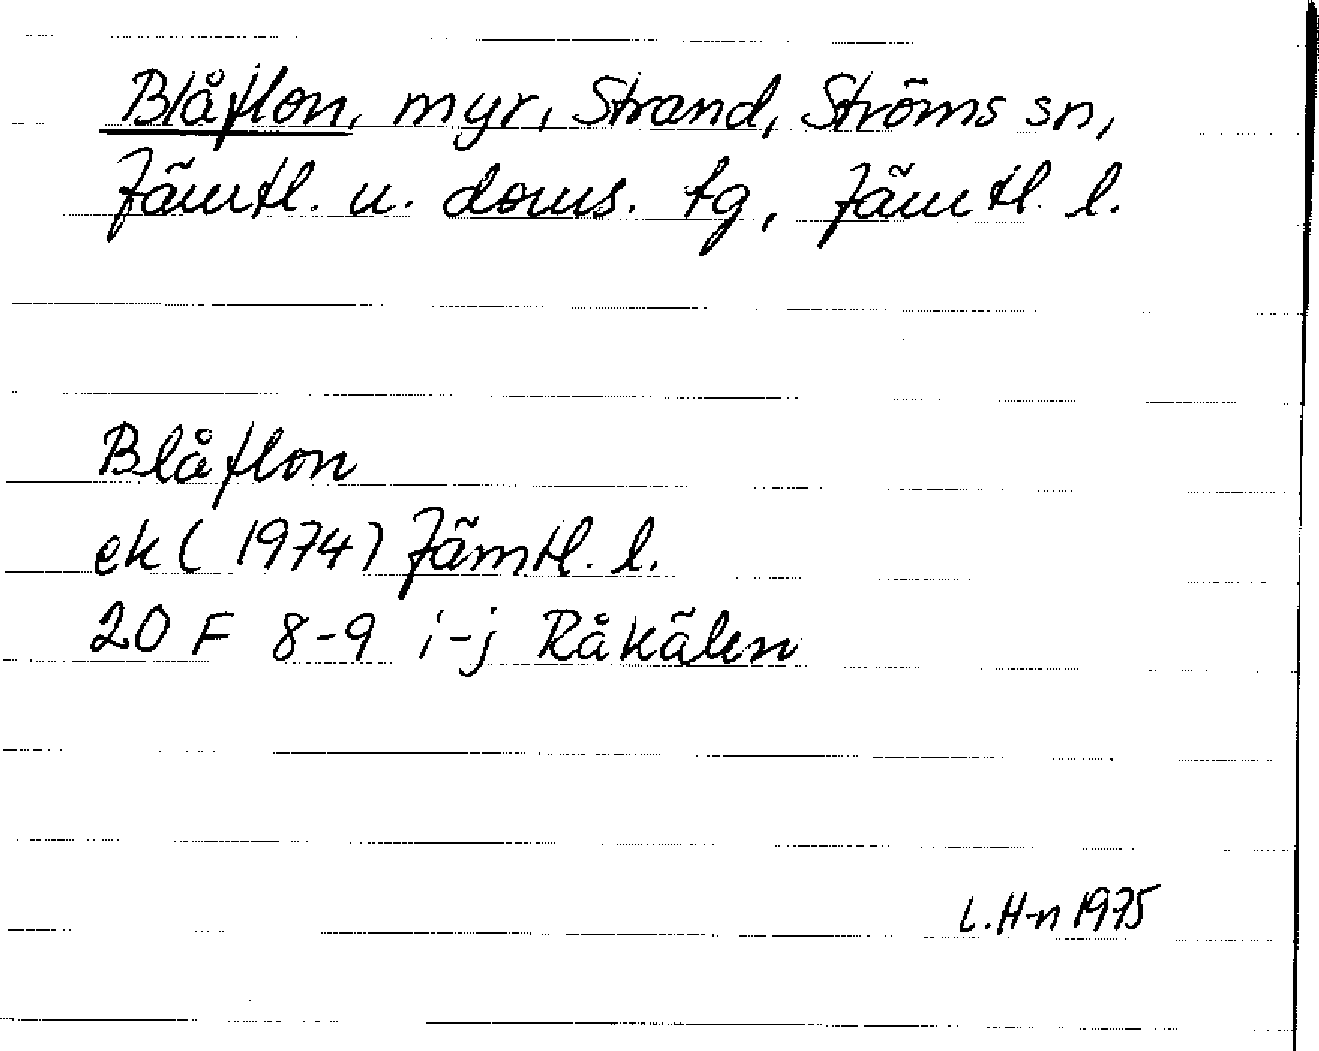 Blåflon, myr, Strand, Ströms sn,
Jämtl. n. doms. tg, Jämtl. l.
Blåflon
ek (1974) Jämtl. l.
20 F 8-9 i-j Råkälen
L. H-n 1975